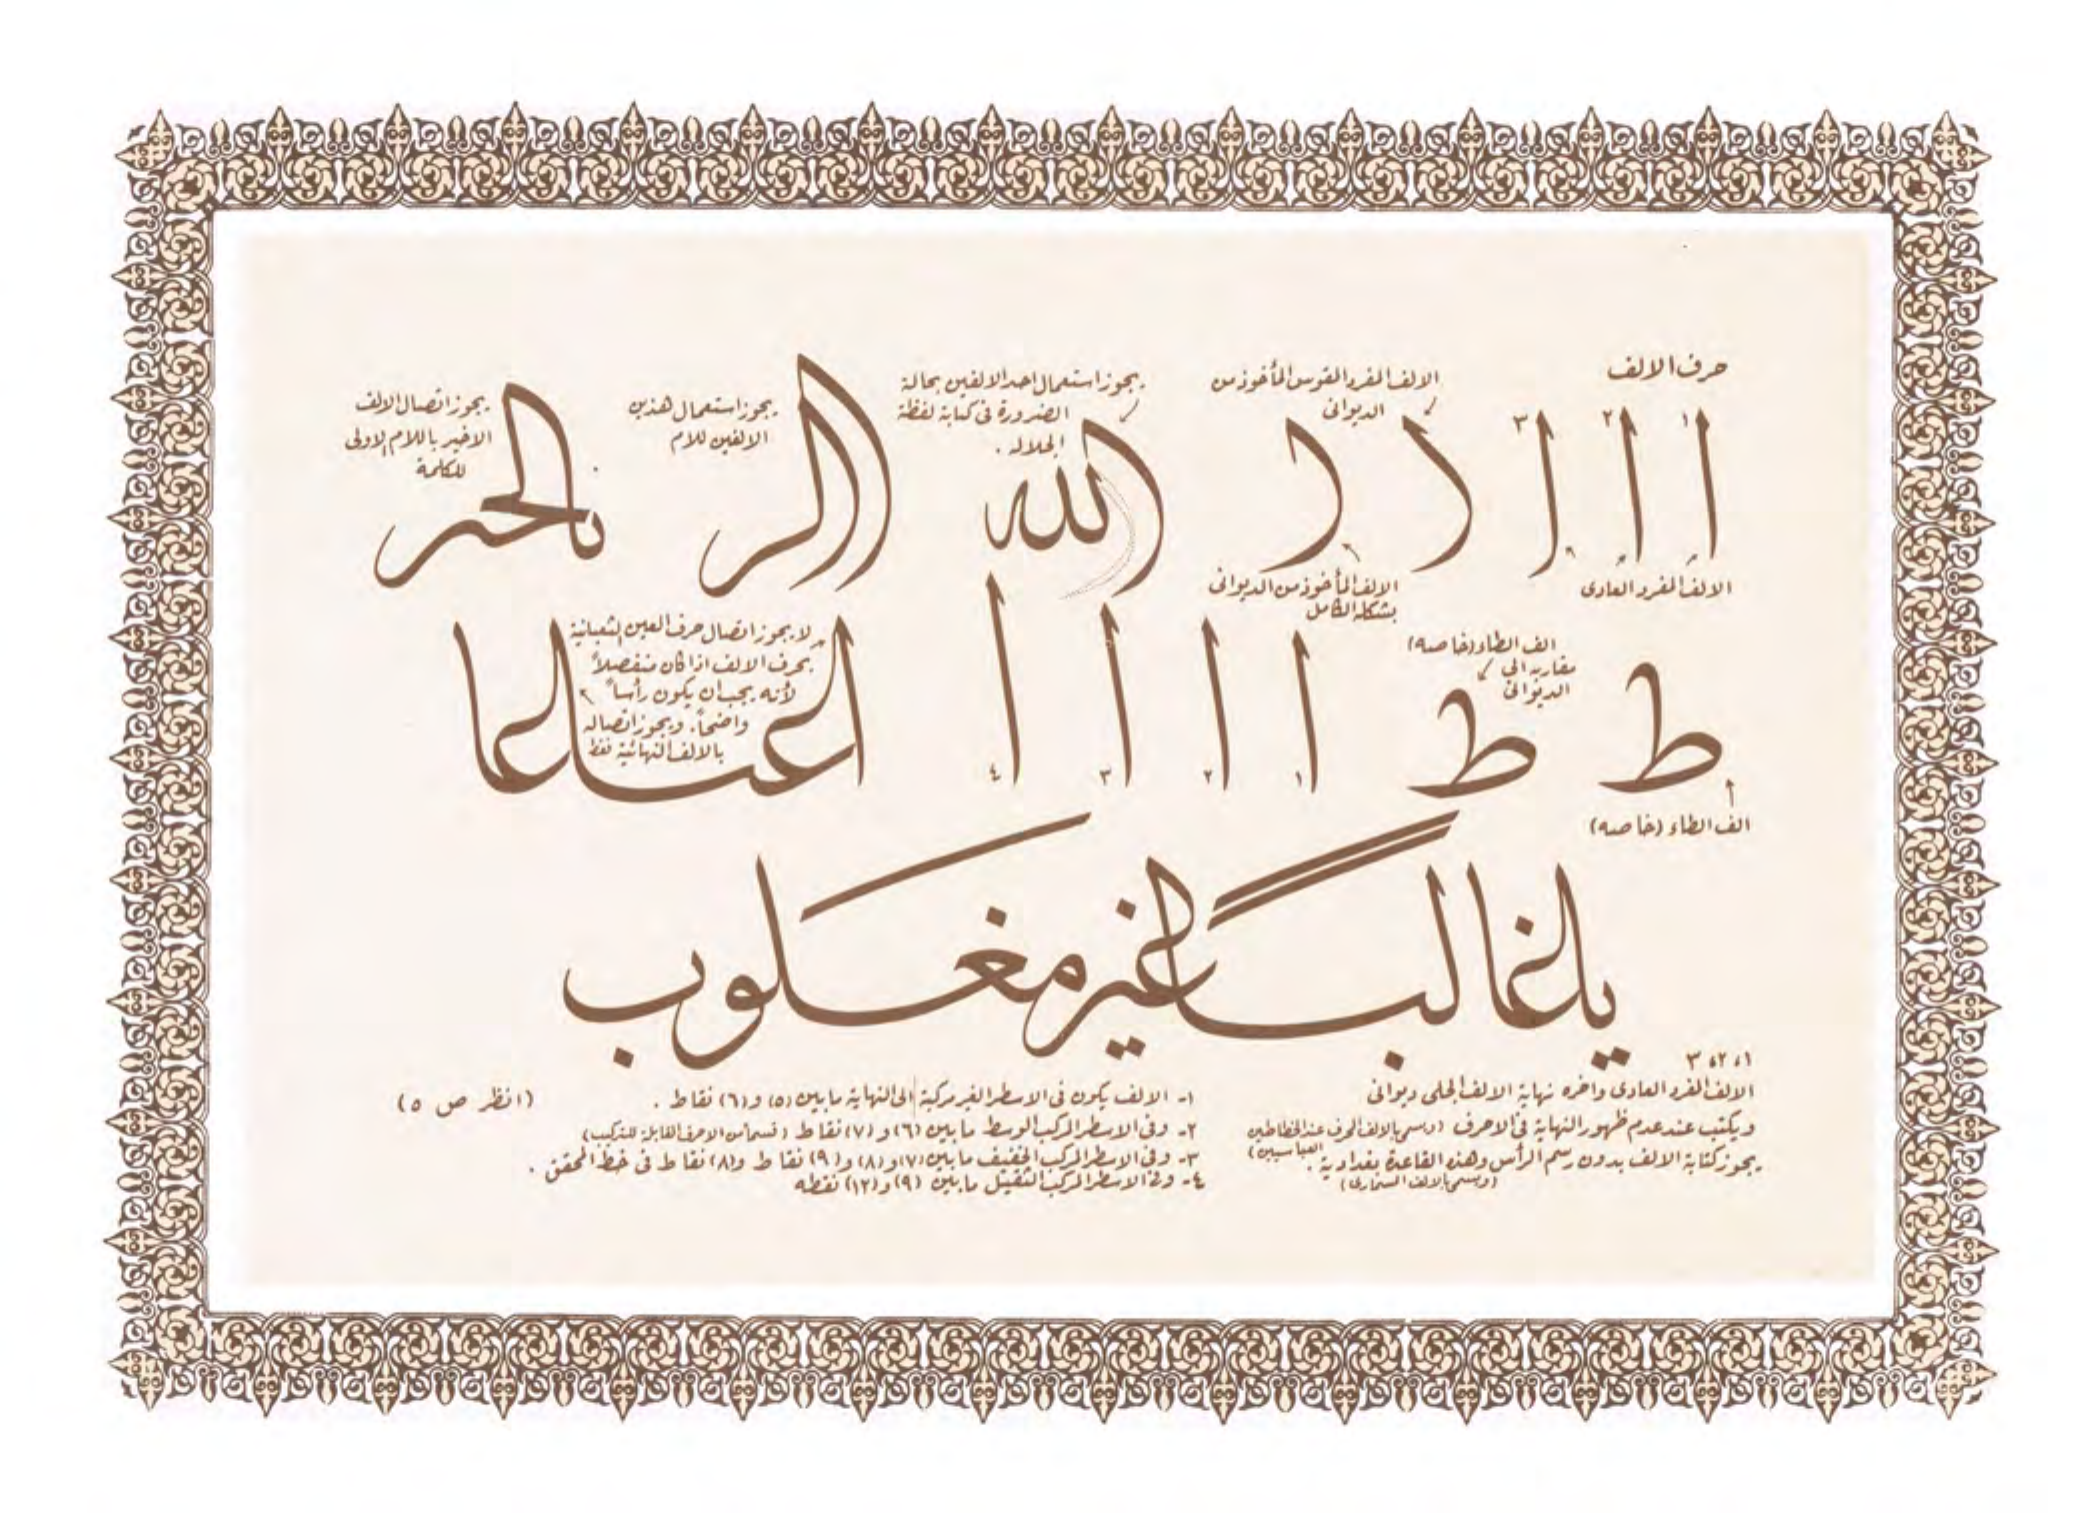 حرف الالف
١ ا ٢ ا ٣ ا
الالف المفرد العادى
الالف المفرد المقوس المأخوذ من
الديوانى
الالف المأخوذ من الديوانى
بشكله الكامل
يجوز استعمال احد الالفين بحالة
الضرورة فى كتابة لفظة
الجلاله .
الله
يجوز استعمال هذين
الالفين للام
الر
يجوز اتصال الالف
الاخير باللام الاولى
للكلمة
ط ط
الف الطاء (خاصه)
الف الطاء (خاصه)
مقاربه الى
الديوانى
ا ١ ا ٢ ا ٣ ا ٤
لا يجوز اتصال حرف العين الثعبانية
بحرف الالف اذا كان منفصلاً
لأنه يجب ان يكون رأسا
واضحاً. ويجوز اتصاله
بالالف النهائية فقط
يا غالبا غير مغلوب
١ ، ٢ ، ٣
الالف المفرد العادى واخره نهاية الالف الجلى ديوانى
ويكتب عند عدم ظهور النهاية فى الاحرف (ويسمى بالالف المحرف عند الخطاطين
العباسيين)
يجوز كتابة الالف بدون رسم الرأس وهذه القاعدة بغدادية .
١- الالف يكون فى الاسطر الغير مركبة الى النهاية ما بين (٥) و (٦) نقاط .
(انظر ص ٥)
٢- وفى الاسطر المركب الوسط ما بين (٦) و (٧) نقاط ( قسما من الاحرف القابلة للتركيب)
٣- وفى الاسطر المركب الخفيف ما بين (٧) و (٨) و (٩) نقاط و (٨) نقاط فى خط المحقق .
٤- وفى الاسطر المركب الثقيل ما بين (٩) و (١٢) نقطه